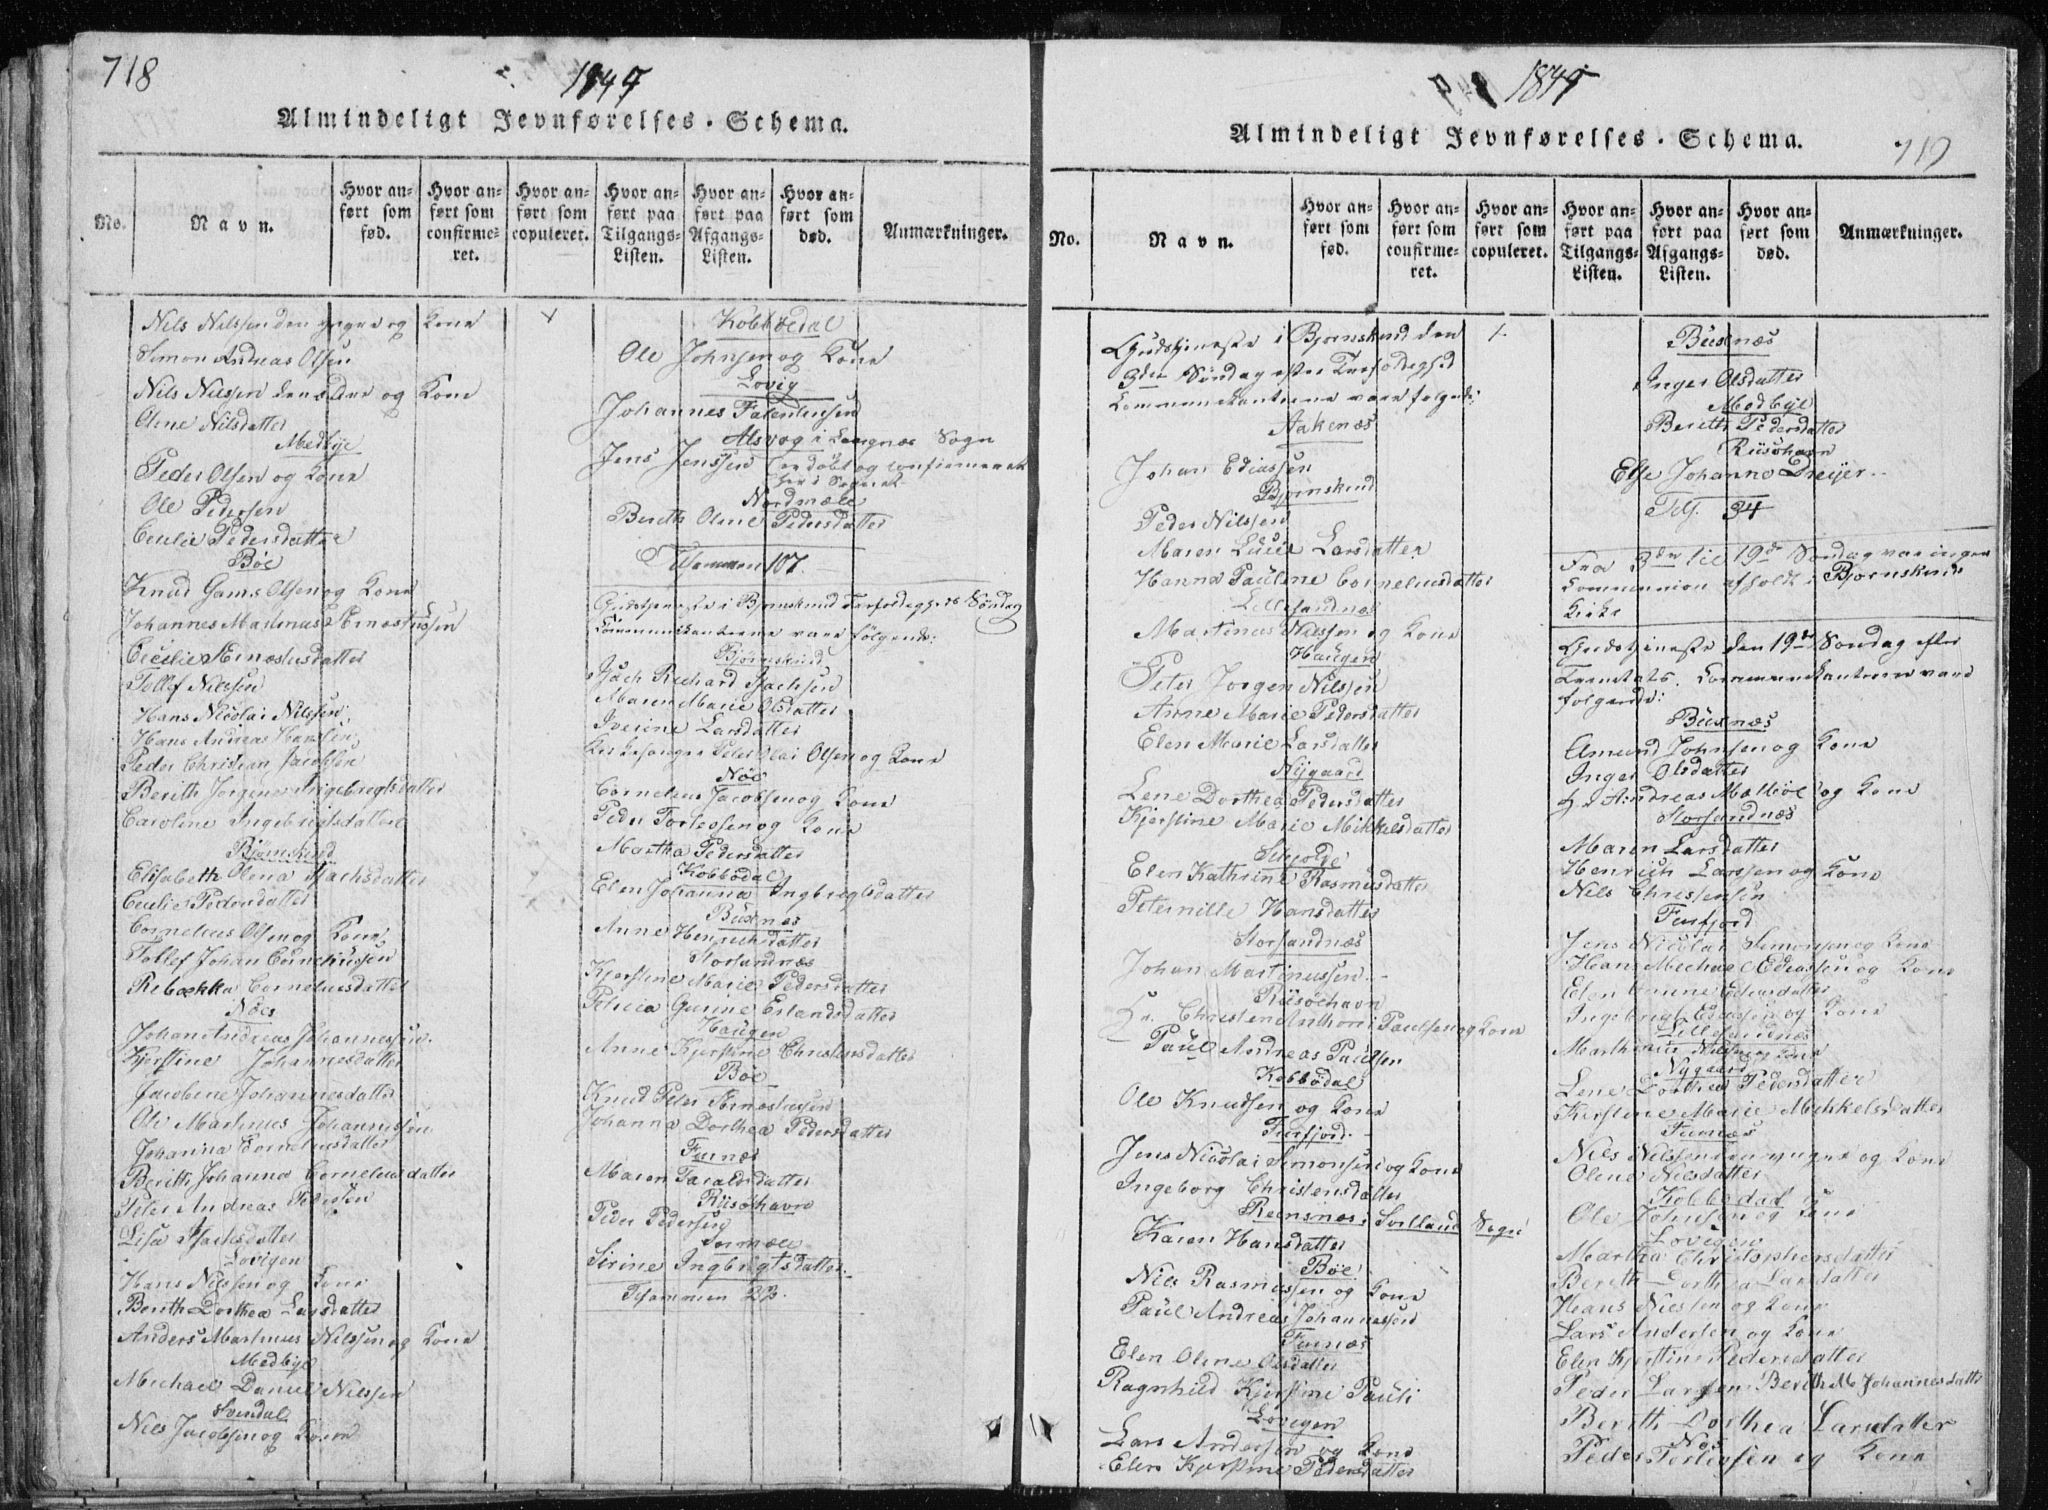 718
1847
Almindeligt Jevnførelses-Schema.
No.
Navn.
Hvor anført som fød.
Hvor anført som confirmeret.
Hvor anført som copuleret.
Hvor anført paa Tilgangs-Listen.
Hvor anført paa Afgangs-Listen.
Hvor anført som død.
Anmærkninger.
Nils Nilssen den yngre og Kone
Simon Andreas Olsen
Nils Nilssen den ældre og Kone
Olene Nilsdatter
Medbye
Peder Olsen og Kone
Ole Pedersen
Cecilie Pedersdatter
Böe
Knud Gams Olsen og Kone
Johannes Martinus Arnestussen
Cecilie Arnestusdatter
Tollef Nilssen
Hans Nicolai Nilssen
Hans Andreas Hanssen
Peder Christian Jacobsen
Berith Jörgine Ingebregtsdatter
Caroline Ingebrigtsdatter
Bjørnskind
Elisabeth Olena Isachsdatter
Cecilie Pedersdatter
Cornelius Olsen og Kone
Tollef Johan Corneliussen
Rebækka Corneliusdatter
Nöes
Johan Andreas Johannessen
Kjerstine Johannesdatter
Jacobine Johannesdatter
Ole Martinus Johannessen
Johanna Corneliusdatter
Berith Johanna Corneliusdatter
Peter Andreas Pedersen
Lisa Isachsdatter
Lovigen
Hans Nilssen og Kone
Berith Dorthea Larsdatter
Anders Martinus Nilssen og Kone
Medbye
Michael Daniel Nilssen
Svendal
Nils Jacobsen og Kone
Kobbödal
Ole Johnsen og Kone
Lovig
Johannes Falentinsen
Alsvog i Langnæs Sogn
Jens Jenssen er döbt og confirmeret
her i Sognet
Nordmæle
Berith Olene Pedersdatter
Tilsammen 107
Gudstjeneste i Bjørnskind Søndag
Communicanterne vare følgende:
Bjørnskind
Isach Richard Isachsen
Maren Marie Olsdatter
Iverine Larsdatter
Kirkesanger Peter Olai Olsen og Kone
Nöe
Cornelius Jacobsen og Kone
Peder Torleosen og Kone
Martha Pedersdatter
Kobbödal
Elen Johanna Ingbregtsdatter
Buxnæs
Anne Henrichsdatter
Storsandnæs
Kjerstine Marie Pedersdatter
Petricia Gurine Erlandsdatter
Haugen
Anne Kjerstine Christensdatter
Böe
Knud Peter Arnestussen
Johanna Dorthea Pedersdatter
Furnæs
Maren Taraldsdatter
Riisöehavn
Peder Pedersen
Sirine Ingbrigtsdatter
Tilsammen 23.
1847
Almindeligt Jevnførelses-Schema.
719
No.
Navn.
Hvor anført som fød.
Hvor anført som confirmeret.
Hvor anført som copuleret.
Hvor anført paa Tilgangs-Listen.
Hvor anført paa Afgangs-Listen.
Hvor anført som død.
Anmærkninger.
Gudstjeneste i Bjørnskind den
3die Søndag efter
Communicanterne vare følgende:
Aaknæs
Johan Ediassen
Bjørnskind
Peder Nilssen
Maren Lucie Larsdatter
Hanna Pauline Corneliusdatter
Lillesandnæs
Martinus Nilssen og Kone
Haugen
Peter Jörgen Nilssen
Anne Marie Pedersdatter
Elen Marie Larsdatter
Nygaard
Lene Dorthea Pedersdatter
Kjerstine Marie Mikkelsdatter
Skjolde
Elen Kathrine Rasmusdatter
Peternille Hansdatter
Storsandnæs
Johan Martinussen
Riisöehavn
Hr. Christen Anthoni Paulsen og Kone
Paul Andreas Paulsen
Kobbödal
Ole Knudsen og Kone
Finfjord
Jens Nicolai Simonsen og Kone
Ingeborg Christensdatter
Reensnæs, Sortland Sogn
Karen Hansdatter
Böe
Nils Rasmussen og Kone
Paul Andreas Johannessen
Furnæs
Elen Olene Olsdatter
Ragnhild Kjerstine Pauli
Lovigen
Lars Andersen og Kone
Elen Kjerstine Pedersdatter
Buxnæs
Inger Olsdatter
Medbye
Berith Pedersdatter
Riisöhavn
Else Johanne Dreyer
Tils. 34
Fra 3die til 19de Søndag var ingen
Communion afholdt i Bjørnskind
Kirke
Gudstjeneste den 19de Søndag efter
Trinitatis. Communicanterne vare
følgende:
Buxnæs
Amund Johnsen og Kone
Inger Olsdatter
Hr. Andreas Mælböe og Kone
Storsandnæs
Maren Larsdatter
Henrich Larssen og Kone
Nils Christensen
Finfjord
Jens Nicolai Simonsen og Kone
Hans Michael Ediassen og Kone
Elen Ediasdatter
Ingebrigt Ediassen og Kone
Lillesandnæs
Marthinus Nilssen og Kone
Nygaard
Lene Dorthea Pedersdatter
Kirstine Marie Mikkelsdatter
Furnæs
Nils Nilssen den yngre og Kone
Olene Nilsdatter
Kobbedal
Ole Johnsen og Kone
Lovigen
Martha Christophersdatter
Berith Dorthea Larsdatter
Hans Nilssen og Kone
Lars Andersen og Kone
Elen Kjerstine Pedersdatter
Peder Larssen Berith M. Johannesdatter
Berith Dorthea Larsdatter
Nöe
Peder Torleosen og Kone